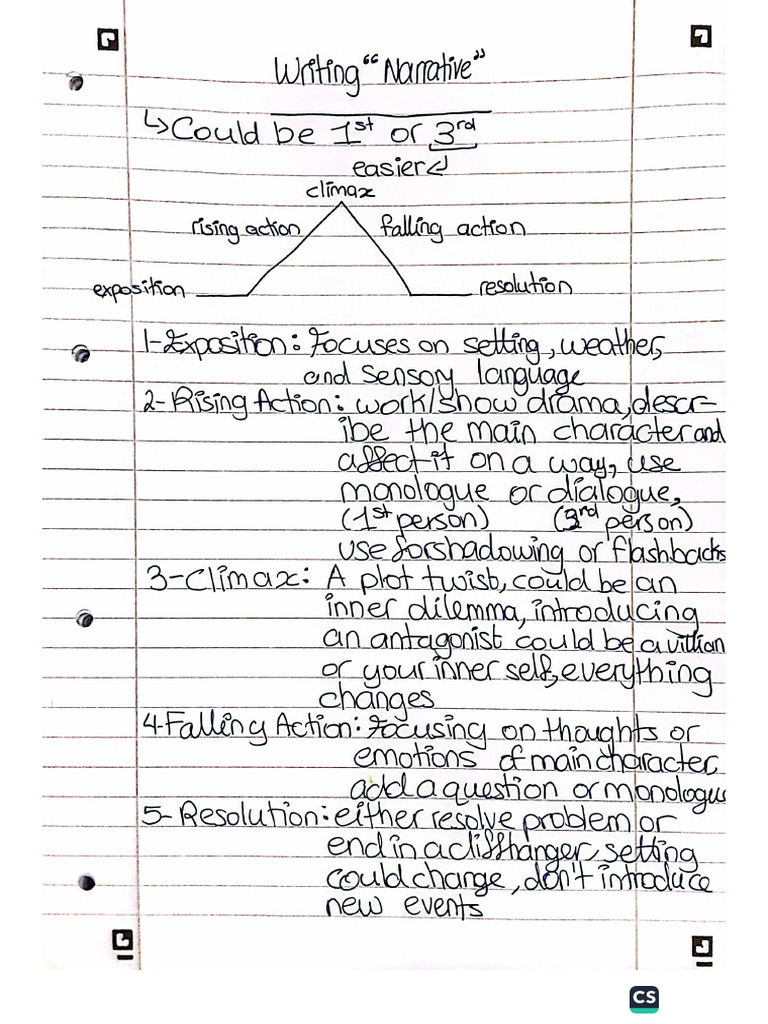 Writing "Narrative"
↳Could be 1st or 3rd
easier↲
climax
rising action falling action
exposition resolution
1-Exposition: Focuses on setting, weather,
and sensory language
2-Rising Action: work/show drama, descr-
ibe the main character and
affect it on a way, use
monologue or dialogue,
(1st person) (3rd person)
use forshadowing or flashbacks
3-Climax: A plot twist, could be an
inner dilemma, introducing
an antagonist could be a villian
or your inner self, everything
changes
4-Falling Action: Focusing on thoughts or
emotions of main character,
add a question or monologue
5-Resolution: either resolve problem or
end in a cliffhanger, setting
could change, don't introduce
new events
CS